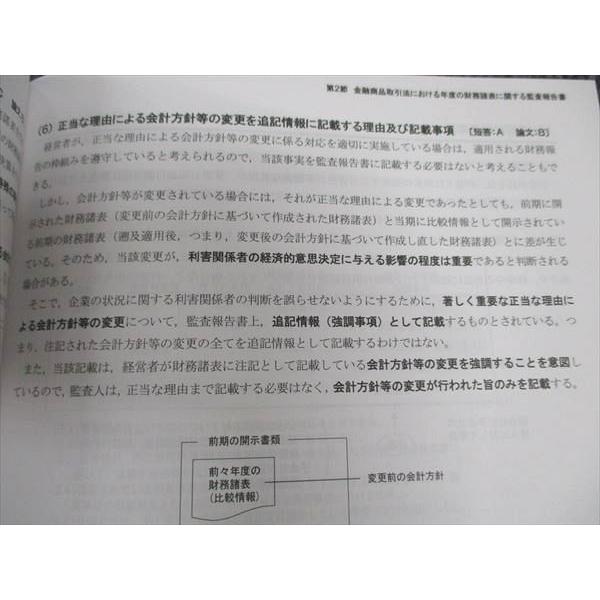 第2節 金融商品取引法における年度の財務諸表に関する監査報告書
(6) 正当な理由による会計方針等の変更を追記情報に記載する理由及び記載事項 〔短答:A 論文:B〕
経営者が，正当な理由による会計方針等の変更に係る対応を適切に実施している場合は，適用される財務報
告の枠組みを遵守していると考えられるので，当該事実を監査報告書に記載する必要はないと考えることもで
きる。
しかし，会計方針等が変更されている場合には，それが正当な理由による変更であったとしても，前期に開
示された財務諸表（変更前の会計方針に基づいて作成された財務諸表）と当期に比較情報として開示されてい
る前期の財務諸表（遡及適用後，つまり，変更後の会計方針に基づいて作成し直した財務諸表）とに差が生じ
ている。そのため，当該変更が，利害関係者の経済的意思決定に与える影響の程度は重要であると判断される
場合がある。
そこで，企業の状況に関する利害関係者の判断を誤らせないようにするために，著しく重要な正当な理由に
よる会計方針等の変更について，監査報告書上，追記情報（強調事項）として記載するものとされている。つ
まり，注記された会計方針等の変更の全てを追記情報として記載するわけではない。
また，当該記載は，経営者が財務諸表に注記として記載している会計方針等の変更を強調することを意図し
ているので，監査人は，正当な理由まで記載する必要はなく，会計方針等の変更が行われた旨のみを記載する。
前期の開示書類
前々年度の
財務諸表
（比較情報）
変更前の会計方針